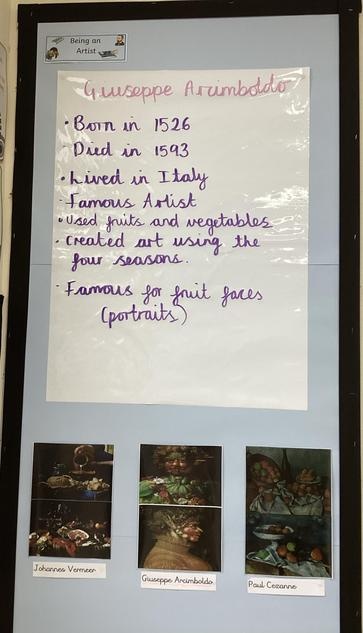 Being an
Artist
Giuseppe Arcimboldo
• Born in 1526
- Died in 1593
• Lived in Italy
- Famous Artist
• used fruits and vegetables
• created art using the
four seasons.
- Famous for fruit faces
(portraits)
Johannes Vermeer
Giuseppe Arcimboldo
Paul Cezanne